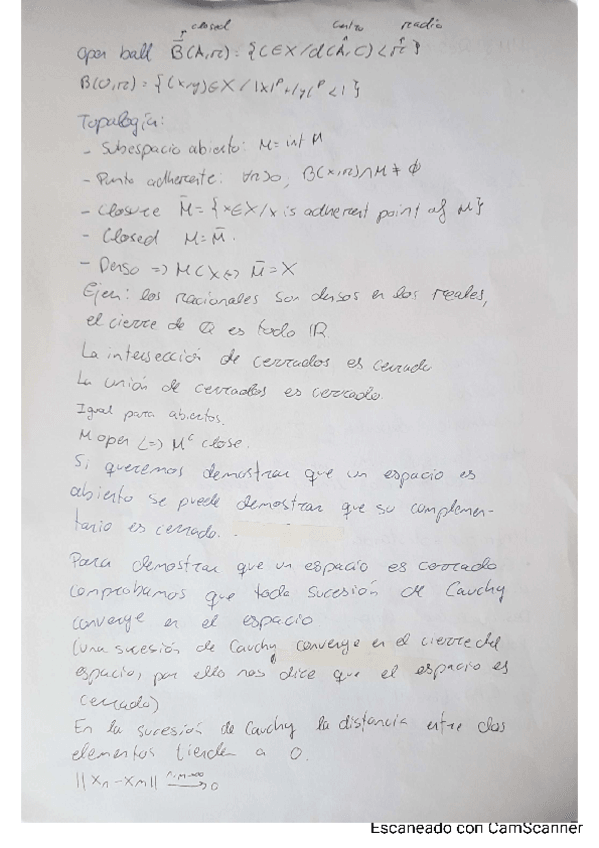 closed centro radio
open ball B̄(A,r) = {C∈X / d(A,C) < r}
B(0,r) = {(x,y)∈X / |x|^p + |y|^p < 1}
Topología:
- Subespacio abierto: M = int M
- Punto adherente: ∀r>0, B(x,r)∩M ≠ ∅
- Closure M̄ = {x∈X / x is adherent point of M}
- Closed M = M̄.
- Denso => M⊂X <=> M̄ = X
Ejem: los racionales son densos en los reales,
el cierre de Q es todo ℝ.
La intersección de cerrados es cerrado
La unión de cerrados es cerrado.
Igual para abiertos.
M open <=> M^c close.
Si queremos demostrar que un espacio es
abierto se puede demostrar que su complemen-
tario es cerrado.
Para demostrar que un espacio es cerrado
comprobamos que toda sucesión de Cauchy
converge en el espacio
(una sucesión de Cauchy converge en el cierre del
espacio, por ello nos dice que el espacio es
cerrado)
En la sucesión de Cauchy la distancia entre dos
elementos tiende a 0.
||xn - xm|| n,m→∞ → 0
Escaneado con CamScanner